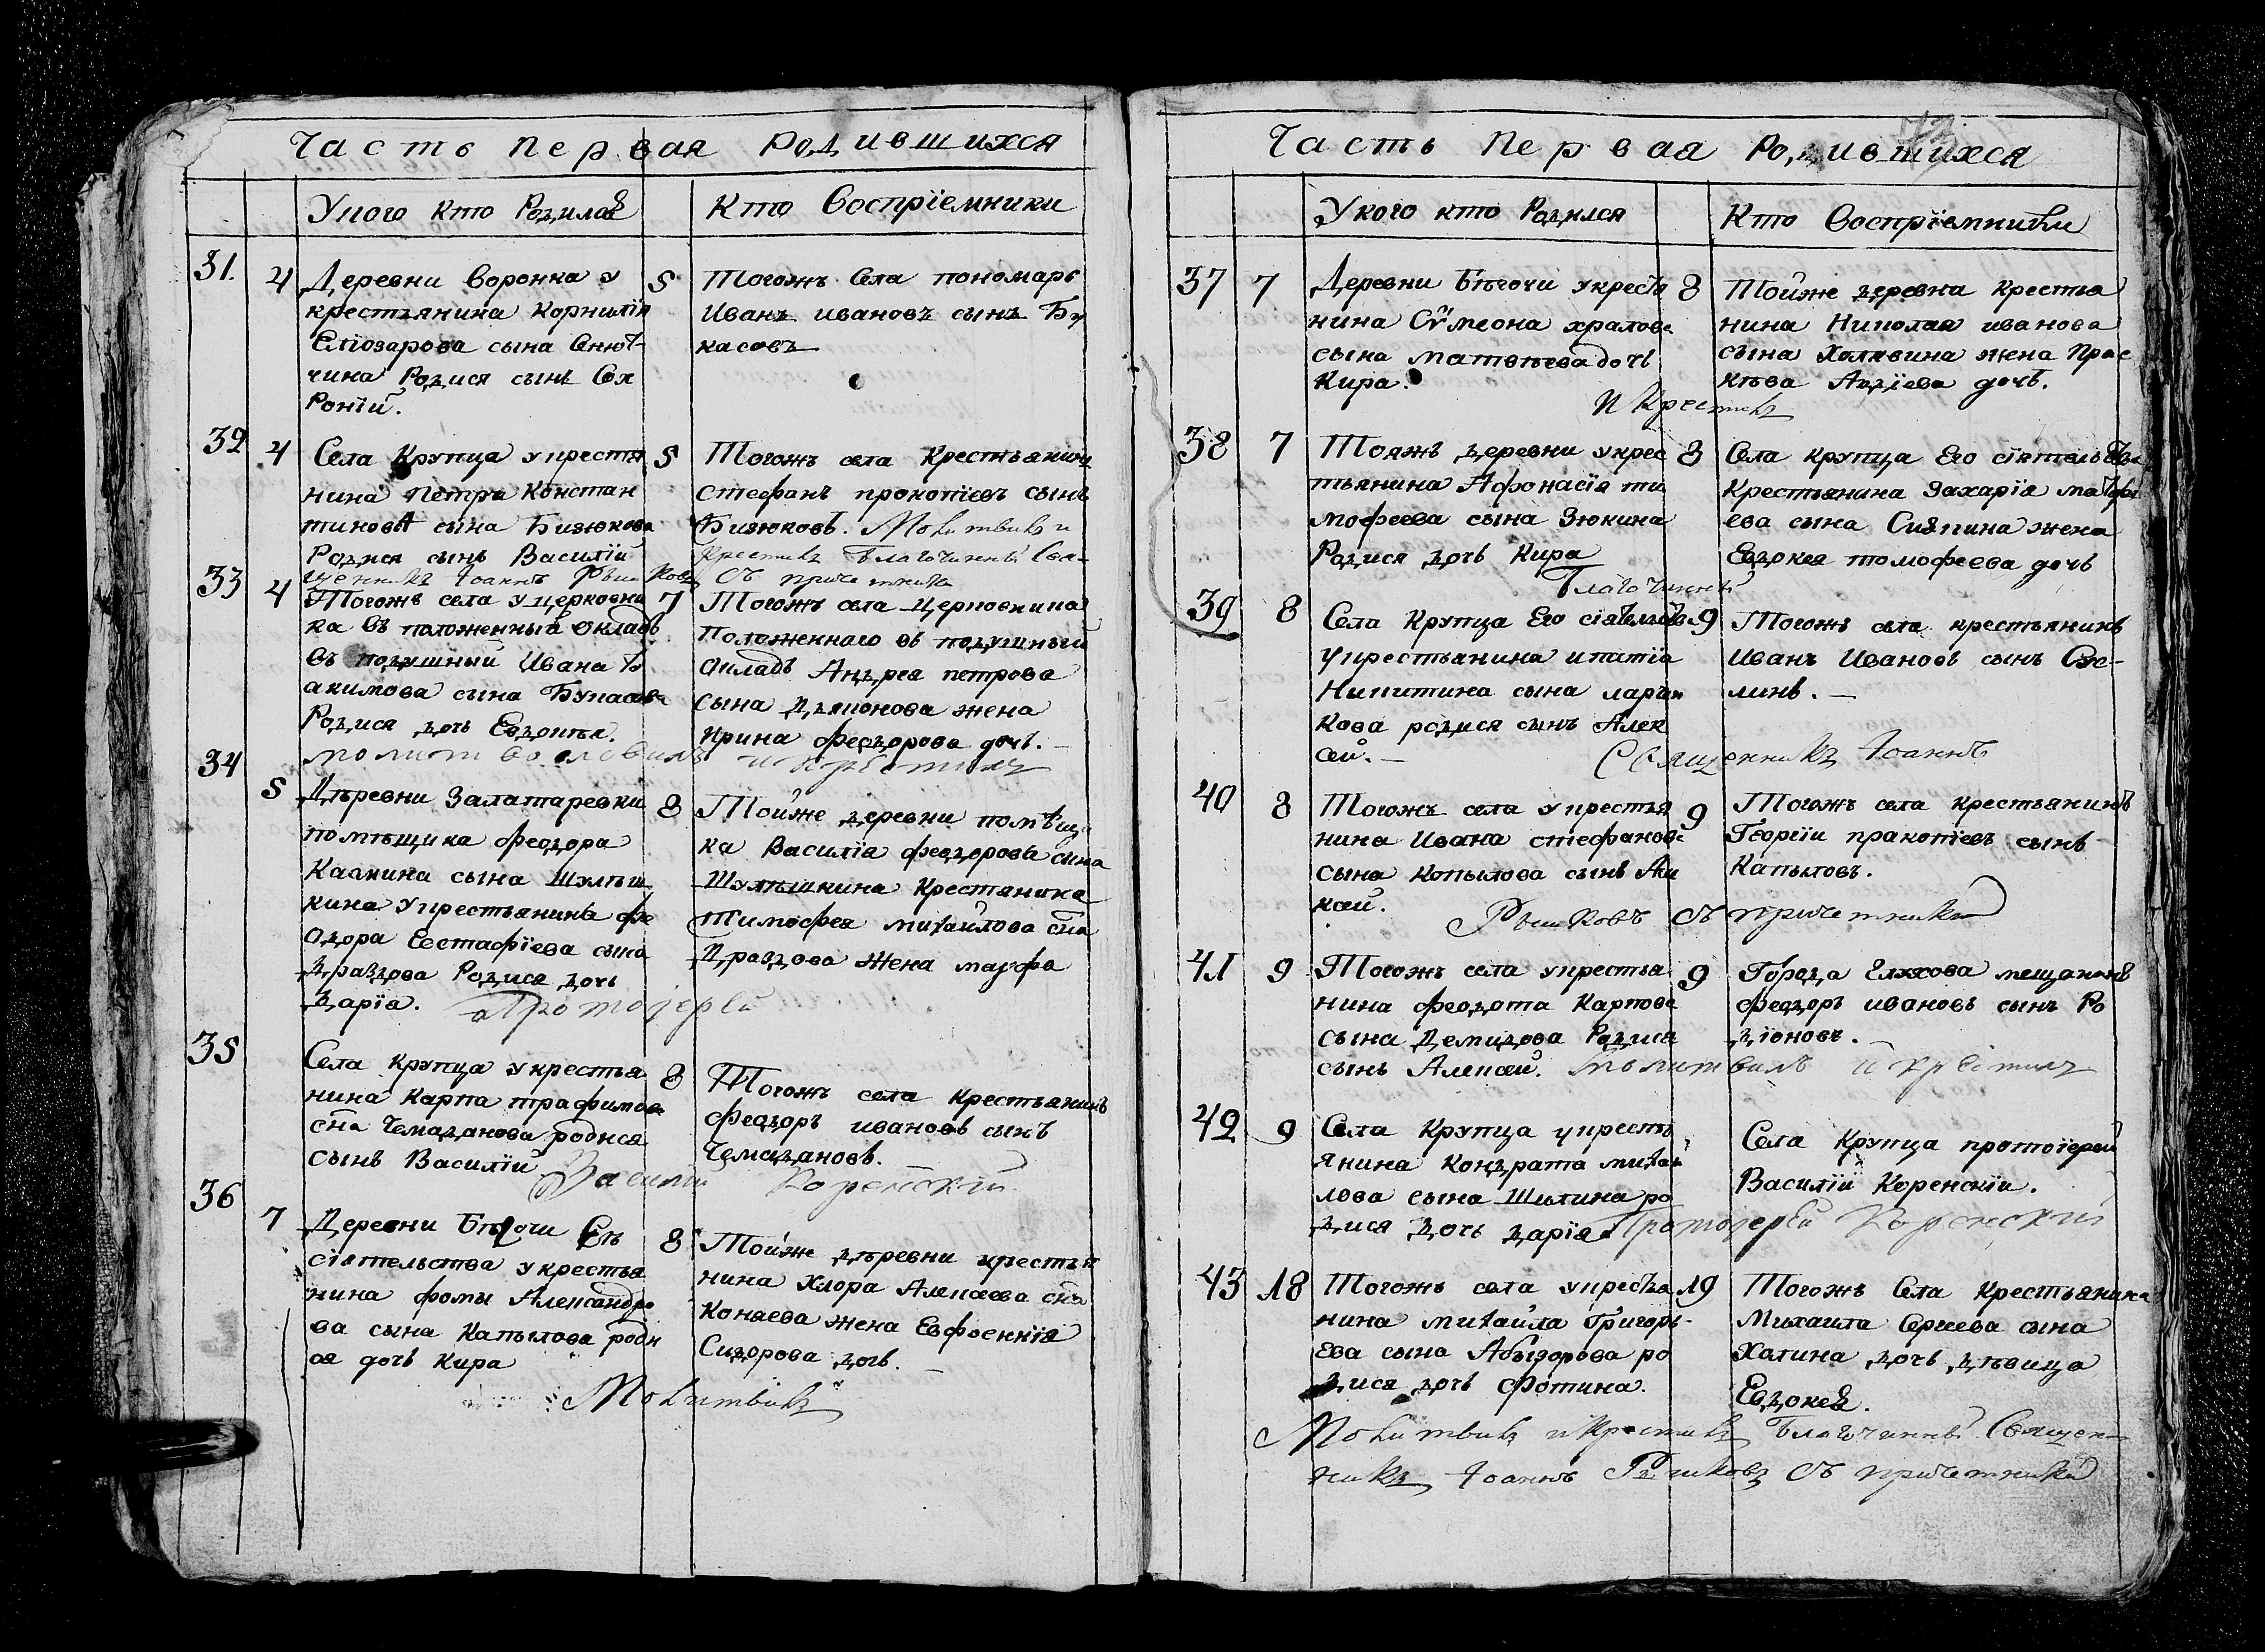 Часть первая Родившихся
Укого кто Родился
Кто Восприемники
31.
4
Деревни Воронка у
крестьянина Корнилія
Еліозарова сына
чина Родися сынъ Соѳ
роній.
5
Тогожъ Села пономарь
Иванъ ивановъ сынъ Бу
касовъ
32
4
Села Крупца укрестья
нина Петра Констан
тинова сына Бизюкова
Родися сынъ Василій
5
Тогожъ села Крестьянинъ
стефанъ прокопіевъ сынъ
Бизюковъ. Молитвилъ и
крестилъ Благочинный Свя-
щенникъ Іоаннъ Рышковъ съ причетники
33
4
Тогожъ села уцерковни
ка въ положенный окладъ
въ подушный Ивана
акимова сына Букасова
Родися дочь Евдокія.
7
Тогожъ села Церковника
Положеннаго въ подушный
окладъ Андрея петрова
сына Дьяконова жена
ирина федорова дочь.
молитвословилъ и крестилъ
34
5
Дѣревни Залатаревки
помѣщика феодора
Калмина сына Шулѣш
кина укрестьянина фе
одора Евстафіева сына
Драздова Родися дочь
дарія.
8
Тойже деревни помѣщи
ка Василіа феодорова сына
Шулѣшкина Крестянина
Тимофея михаилова сна
Драздова жена марфа
Протоіерей
35
Села крупца укрестья
нина Карпа трафимова
сна Чемаданова родися
сынъ Василій
8
Тогожъ села крестьянинъ
Феодоръ ивановъ сынъ
Чемадановъ.
Василій Коренскій
36
7
Деревни Бѣгочи Его
сіятельства укрестья
нина фомы Александро
ва сына Капылова роди
ся дочь Кира
8
Тойже дѣревни крестья
нина Хлора Алексеева сна
Конаева жена Евфоенніа
Сидорова дочь.
Молитвилъ
Часть Первая Родившихся
Укого кто Родился
Кто Восприемники
37
7
Деревни Бѣгочи укрестья
нина Сѵмеона
сына матвѣева дочь
Кира.
8
Тойже деревни крестья
нина Николая иванова
сына Халявина жена Прас
кѣва Авдіева дочь.
и крестилъ
38
7
Тояжъ деревни укрес
тьянина Афонасія ти
мофеева сына Зюкина
Родися дочь Кира
8
Села крупца Его сіятельства
Крестьянина Захарія матфи
ева сына Сиялина жена
Евдокея томофеева дочь
Благочинный
39
8
Села Крупца Его сіятельства
укрестьянина ипатіа
Никитина сына ларьи
кова родися сынъ Алек
сей.
9
Тогожъ села крестьянинъ
Иванъ Ивановъ сынъ Сус-
линъ.
Священникъ Іоаннъ
40
8
Тогожъ села укрестья
нина Ивана стефанова
сына Копылова сынъ Аки
кай.
9
Тогожъ села крестьянинъ
Георгіи пракопіевъ сынъ
Капыловъ.
Рышковъ съ причетники
41
9
Тогожъ села укрестья
нина феодота Карпова
сына Демидова Родися
сынъ Алексей.
9
Города Елхова мещанинъ
Феодоръ ивановъ сынъ Ро
діоновъ.
молитвилъ и крестилъ
42
9
Села Крупца укресть
янина Кондрата михаи
лова сына Шилина ро
дися дочь дарія
Села Крупца протоіерей
Василіи Коренскіи.
Протоіерей Коренскій
43
18
Тогожъ села укрестья
нина михаила Григорь-
ева сына Абыдорова ро
дися дочь Фотина.
19
Тогожъ Села Крестьянина
Михаила Сергеева сына
Халина дочь дѣвица
Евдокея.
Молитвилъ и крестилъ Благочинный Священ-
никъ Іоаннъ Рышковъ съ причетники